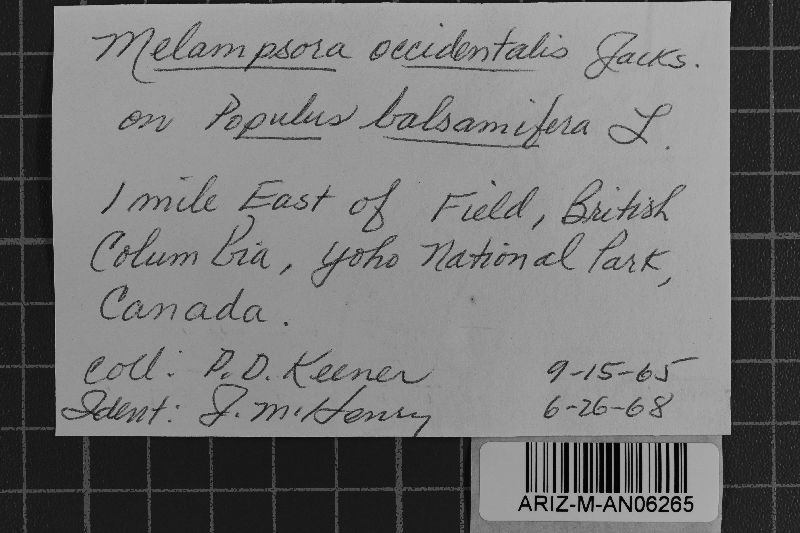 Melampsora occidentalis Jacks.
on Populus balsamifera L.
1 mile East of Field, British
Columbia, Yoho National Park,
Canada.
Coll: P. D. Keener 9-15-65
Ident: J. McHenry 6-26-68
ARIZ-M-AN06265